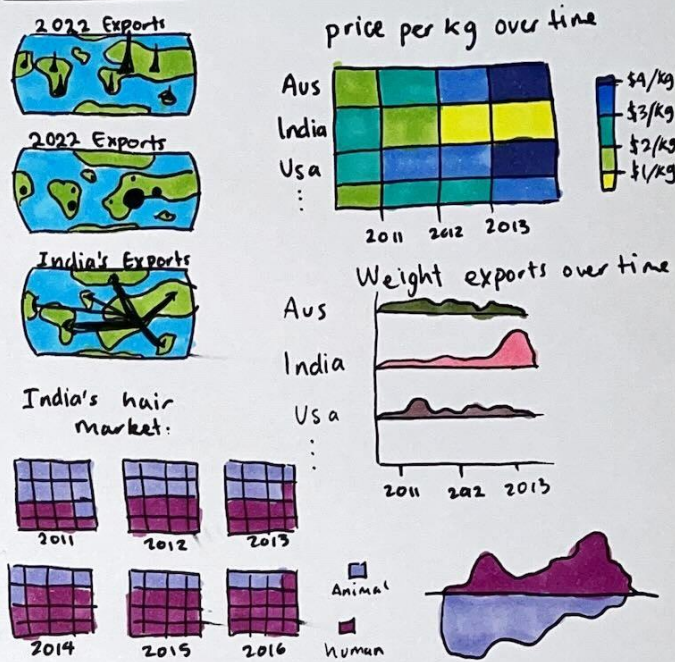 2022 Exports
2022 Exports
India's Exports
India's hair
market:
2011
2012
2013
2014
2015
2016
Animal
human
price per kg over time
Aus
India
Usa
2011
2012
2013
$4/kg
$3/kg
$2/kg
$1/kg
Weight exports over time
Aus
India
Usa
2011
2012
2013